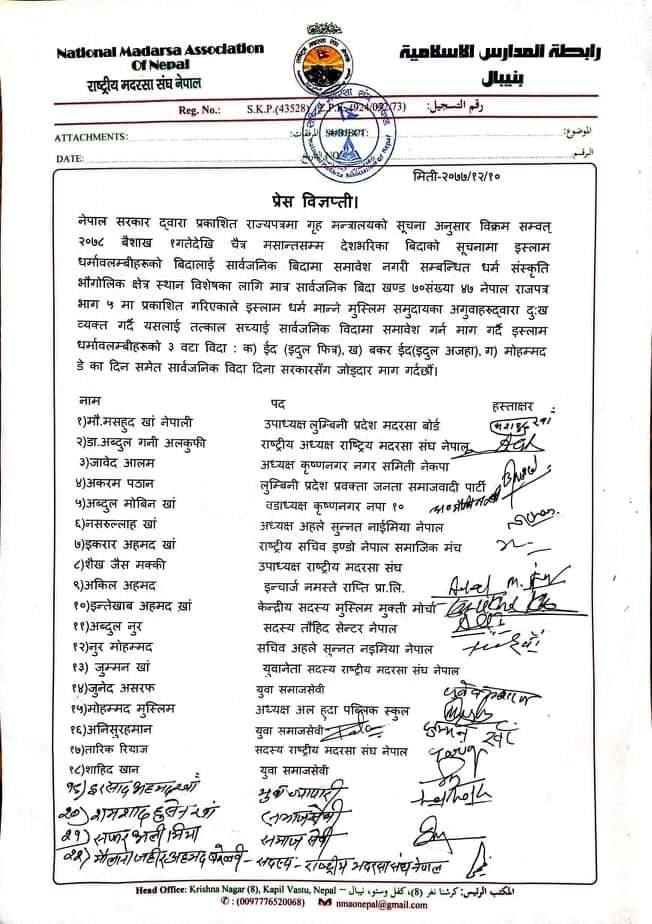 National Madarsa Association
Of Nepal
राष्ट्रीय मदरसा संघ नेपाल
رابطة المدارس الاسلامية
بنيبال
Reg. No.: S.K.P.(43528) Z.P.K. (924/072/73) رقم التسجيل:
ATTACHMENTS: المرفقات: SUBJECT: الموضوع:
DATE: التاريخ NO الرقم
मिती-२०७७/१२/१०
प्रेस विज्ञप्ती।
नेपाल सरकार द्वारा प्रकाशित राज्यपत्रमा गृह मन्त्रालयको सूचना अनुसार विक्रम सम्वत्
२०७८ बैशाख १गतेदेखि चैत्र मसान्तसम्म देशभरिका बिदाको सूचनामा इस्लाम
धर्मावलम्बीहरूको बिदालाई सार्वजनिक बिदामा समावेश नगरी सम्बन्धित धर्म संस्कृति
भौगोलिक क्षेत्र स्थान विशेषका लागि मात्र सार्वजनिक बिदा खण्ड ७०संख्या ४७ नेपाल राजपत्र
भाग ५ मा प्रकाशित गरिएकाले इस्लाम धर्म मान्ने मुस्लिम समुदायका अगुवाहरुद्वारा दु:ख
व्यक्त गर्दै यसलाई तत्काल सच्याई सार्वजनिक विदामा समावेश गर्न माग गर्दै इस्लाम
धर्मावलम्बीहरूको ३ वटा विदा : क) ईद (इदुल फित्र), ख) बकर ईद(इदुल अजहा), ग) मोहम्मद
डे का दिन समेत सार्वजनिक विदा दिना सरकारसँग जोड्दार माग गर्दछौं।
नाम पद हस्ताक्षर
१)मौ.मसहुद खां नेपाली उपाध्यक्ष लुम्बिनी प्रदेश मदरसा बोर्ड
२)डा.अब्दुल गनी अलकुफी राष्ट्रीय अध्यक्ष राष्ट्रिय मदरसा संघ नेपाल
३)जावेद आलम अध्यक्ष कृष्णनगर नगर समिती नेकपा
४)अकरम पठान लुम्बिनी प्रदेश प्रवक्ता जनता समाजवादी पार्टी
५)अब्दुल मोबिन खां वडाध्यक्ष कृष्णनगर नपा १०
६)नसरुल्लाह खां अध्यक्ष अहले सुन्नत नाईमिया नेपाल
७)इकरार अहमद खां राष्ट्रीय सचिव इण्डो नेपाल समाजिक मंच
८)शैख जैस मक्की उपाध्यक्ष राष्ट्रीय मदरसा संघ
९)अकिल अहमद इन्चार्ज नमस्ते राप्ति प्रा.लि.
१०)इन्तेखाब अहमद ख़ां केन्द्रीय सदस्य मुस्लिम मुक्ती मोर्चा
११)अब्दुल नुर सदस्य तौहिद सेन्टर नेपाल
१२)नुर मोहम्मद सचिव अहले सुन्नत नइमिया नेपाल
१३) जुम्मन खां युवानेता सदस्य राष्ट्रीय मदरसा संघ नेपाल
१४)जुनेद असरफ युवा समाजसेवी
१५)मोहम्मद मुस्लिम अध्यक्ष अल हुदा पब्लिक स्कुल
१६)अनिसुरहमान युवा समाजसेवी
१७)तारिक रियाज सदस्य राष्ट्रीय मदरसा संघ नेपाल
१८)शाहिद खान युवा समाजसेवी
१९) इरसाद अहमद खाँ
२०) शमशाद हुसेन खाँ समाजसेवी
२१) सफर अली मिया समाज सेवी
२२) मौलाना जहीर अहमद - सदस्य - राष्ट्रीय मदरसा संघ नेपाल
Head Office: Krishna Nagar (8), Kapil Vastu, Nepal – المكتب الرئيس: كرشنا نغر (8)، كفل وستو، نيبال
: (0097776520068) nmaonepal@gmail.com